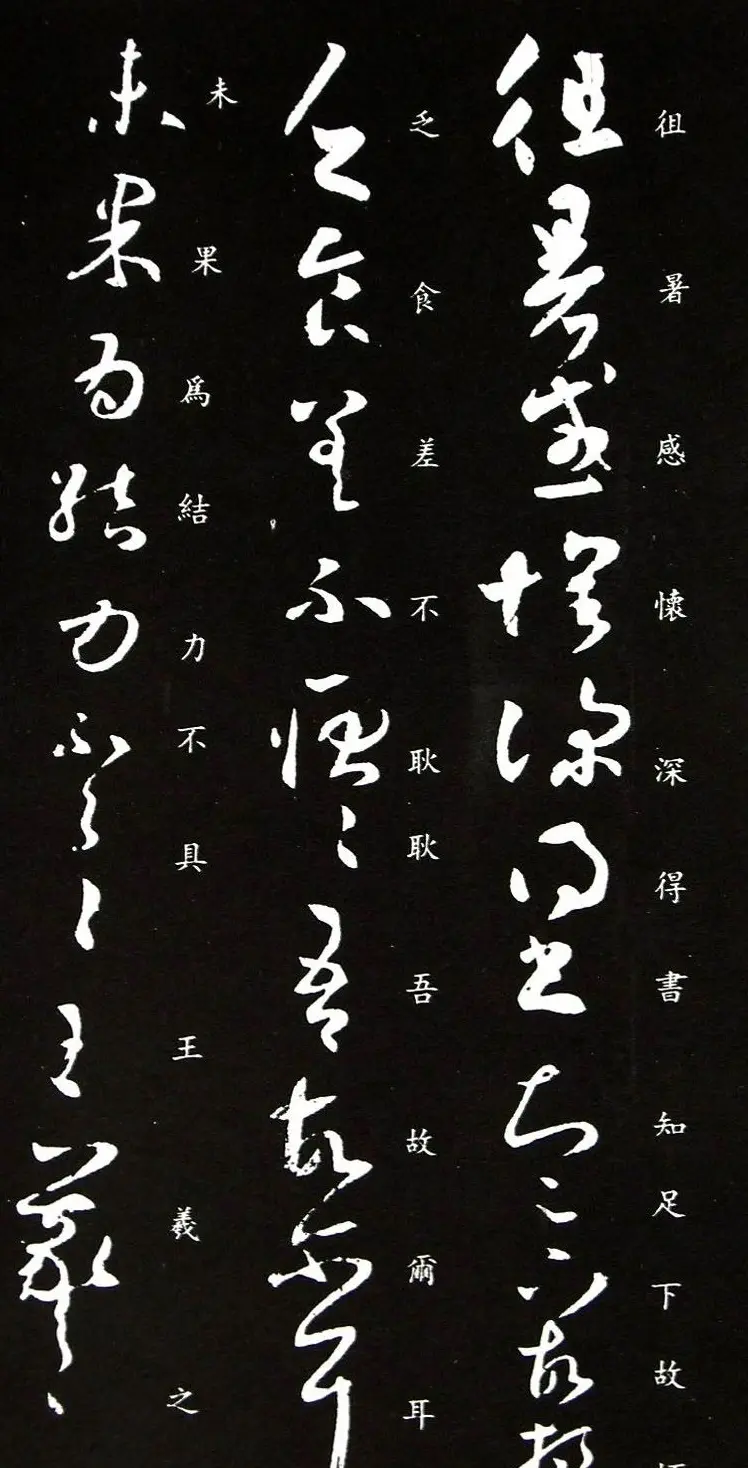 徂暑感懷深得書知足下故
乏食差不耿耿吾故爾耳
未果爲結力不具王羲之